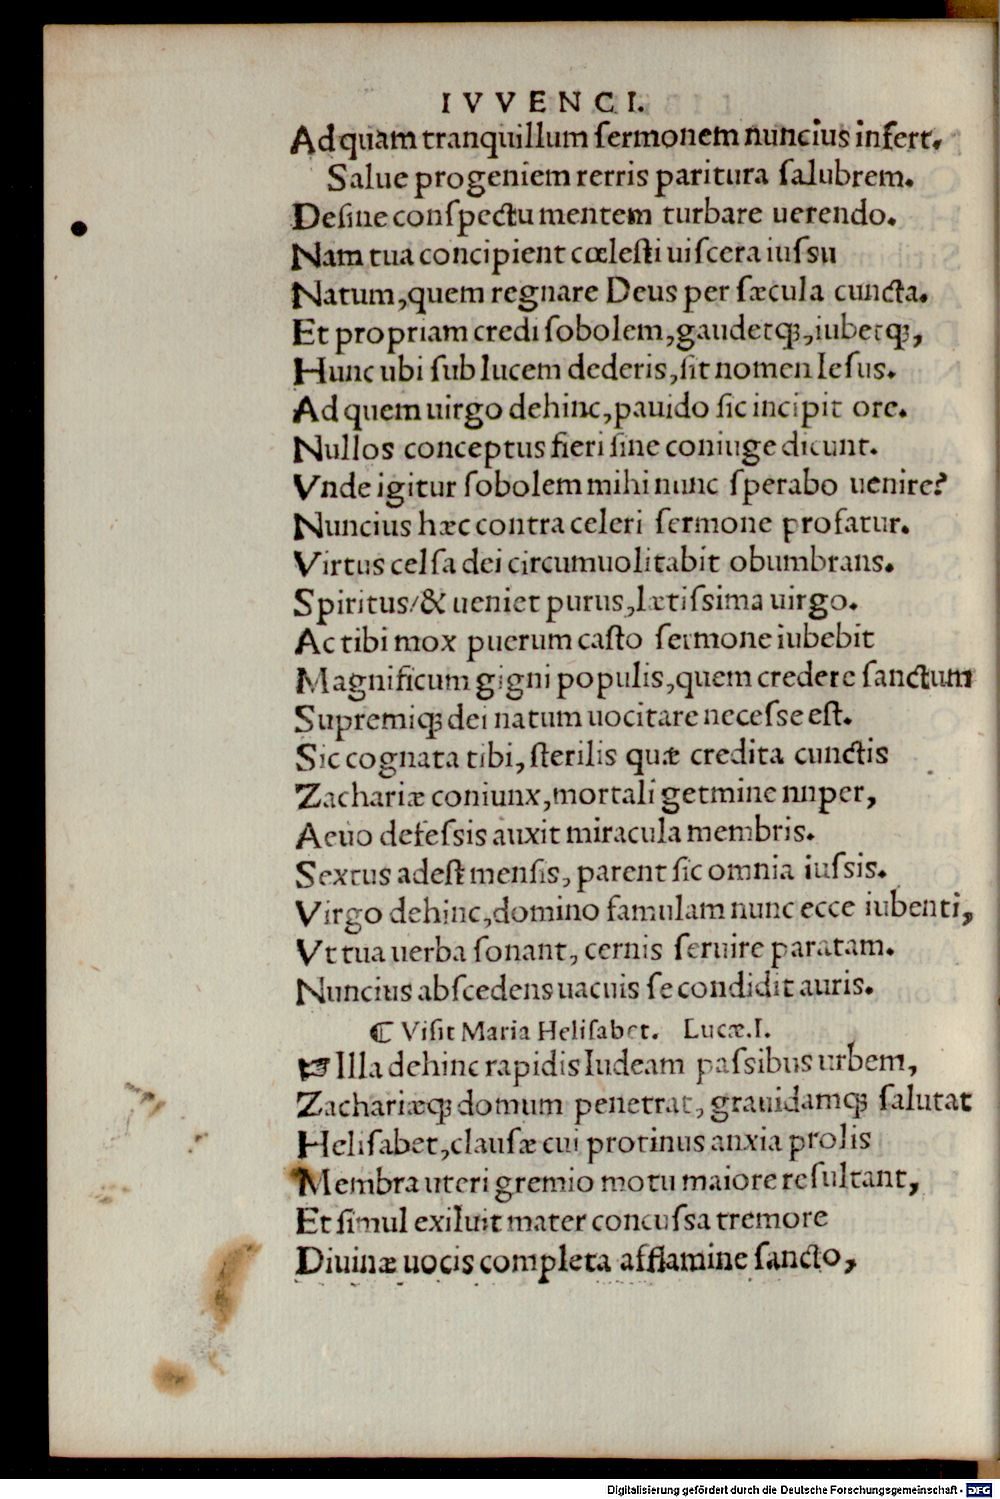 IVVENCI.
Ad quam tranquillum ſermonem nuncius inſert.
Salue progeniem rerris paritura ſalubrem.
Deſine conſpectu mentem turbare uerendo.
Nam tua concipient cœleſti uiſcera iuſsu
Natum, quem regnare Deus per ſæcula cuncta.
Et propriam credi ſobolem, gaudetq;, iubetq;,
Hunc ubi ſub lucem dederis, ſit nomen Ieſus.
Ad quem uirgo dehinc, pauido ſic incipit ore.
Nullos conceptus fieri ſine coniuge dicunt.
Vnde igitur ſobolem mihi nunc ſperabo uenire?
Nuncius hæc contra celeri ſermone profatur.
Virtus celſa dei circumuolitabit obumbrans.
Spiritus/& ueniet purus, lætiſsima uirgo.
Ac tibi mox puerum caſto ſermone iubebit
Magnificum gigni populis, quem credere ſanctum
Supremiq; dei natum uocitare neceſse eſt.
Sic cognata tibi, ſterilis quæ credita cunctis
Zachariæ coniunx, mortali getmine nnper,
Aeuo defeſsis auxit miracula membris.
Sextus adeſt menſis, parent ſic omnia iuſsis.
Virgo dehinc, domino famulam nunc ecce iubenti,
Vt tua uerba ſonant, cernis ſeruire paratam.
Nuncius abſcedens uacuis ſe condidit auris.
⁋ Viſit Maria Heliſabet. Lucæ.I.
☞ Illa dehinc rapidis Iudeam paſsibus urbem,
Zachariæq; domum penetrat, grauidamq; ſalutat
Heliſabet, clauſæ cui protinus anxia prolis
Membra uteri gremio motu maiore reſultant,
Et ſimul exiluit mater concuſsa tremore
Diuinæ uocis completa afflamine ſancto,
Digitalisierung gefördert durch die Deutsche Forschungsgemeinschaft - DFG